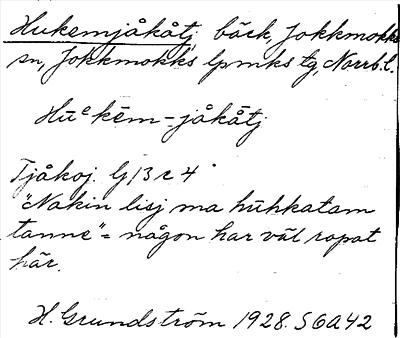 Hukemjåkåtj bäck, Jokkmokks
sn, Jokkmokks lpmks tg, Norrb.l.
Hūᵉkēm-jåkåtj
Tjåkoj. G 13 c 4
"Nakin lisj ma hūhkatam
tanne" = någon har väl ropat
här.
H. Grundström 1928. S6A42